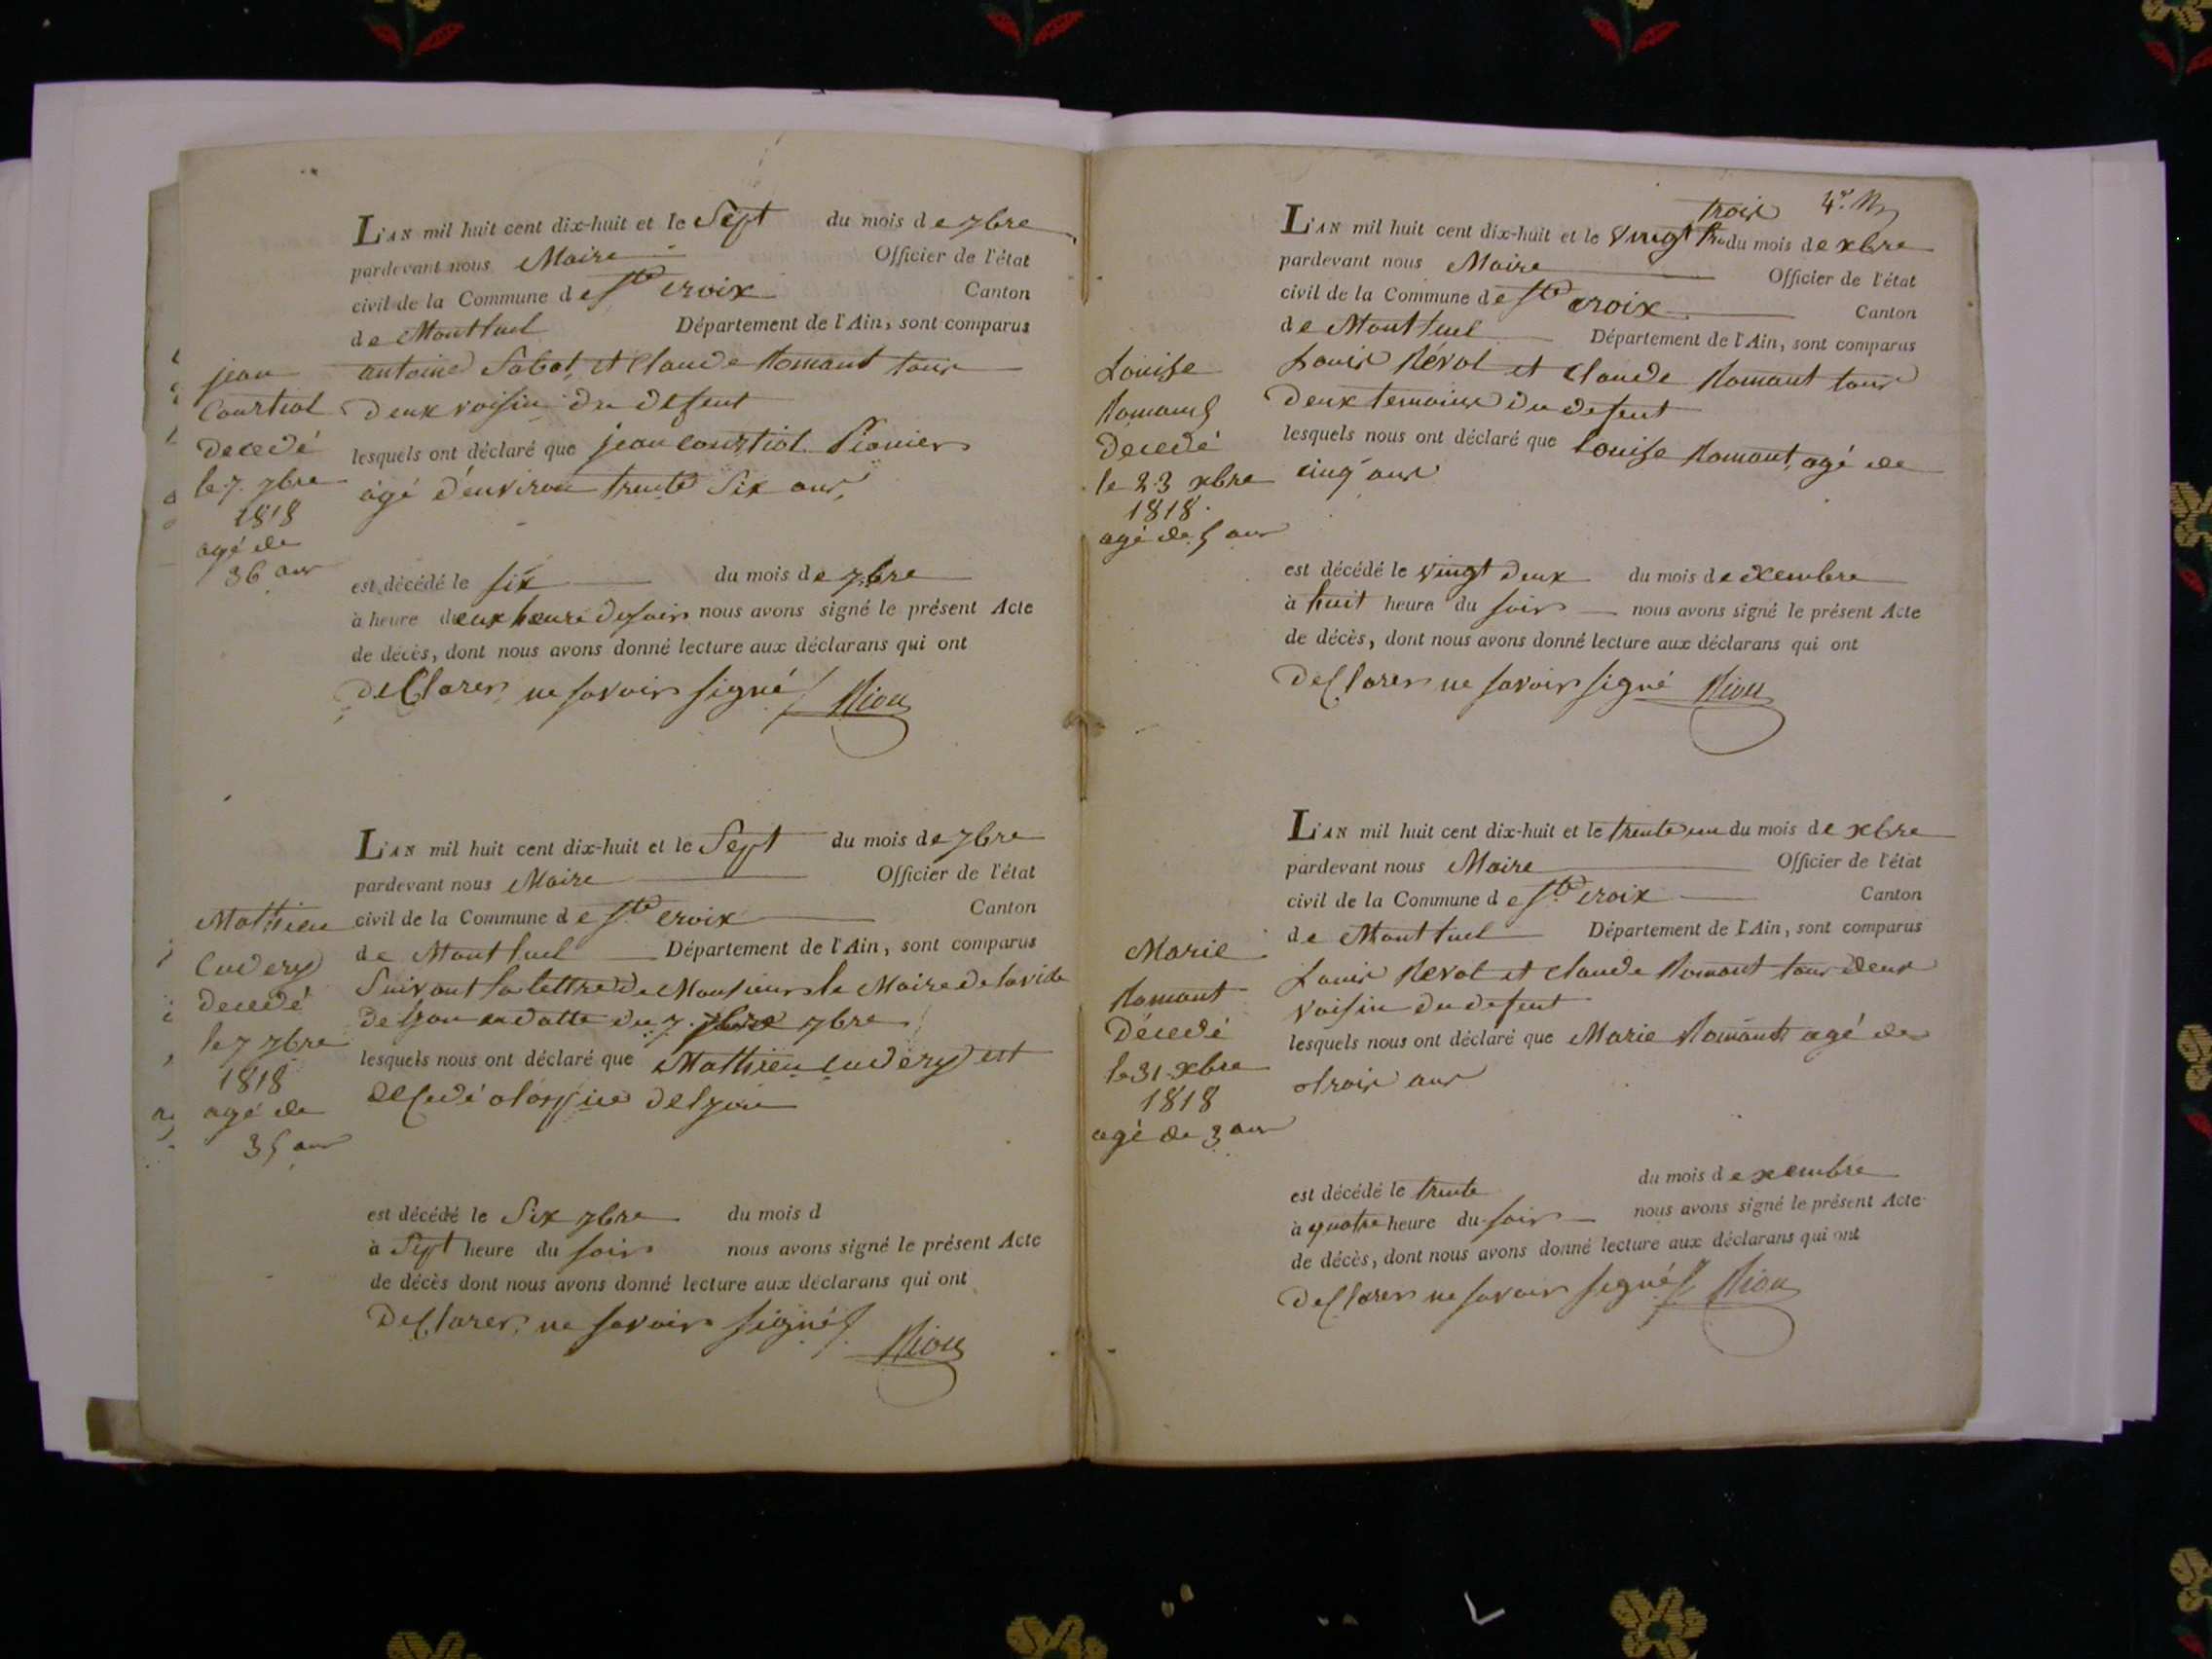 L'AN mil huit cent dix-huit et le Sept du mois de 7bre
pardevant nous Maire Officier de l'état
civil de la Commune de Ste croix Canton
de Montluel Département de l'Ain, sont comparus
antoine Sabot et Claude Romant tous
deux voisin du defeut
lesquels ont déclaré que jean Courtiol Pionier
agé d'environ trente Six ans
est décédé le six du mois de 7bre
à heure deux heure du soir nous avons signé le présent Acte
de décès, dont nous avons donné lecture aux déclarans qui ont
declarer ne savoir signé Riou
jean
Courtiol
decedé
le 7 7bre
1818
agé de
36 ans
L'AN mil huit cent dix-huit et le Sept du mois de 7bre
pardevant nous Maire Officier de l'état
civil de la Commune de Ste croix Canton
de Montluel Département de l'Ain, sont comparus
Suivant la lettre de Monsieur le Maire de la vile
de lyon en datte du 7 7bre
lesquels nous ont déclaré que Mathieu cudery est
decedé a lospice de lyon
est décédé le Six 7bre du mois d
à Sept heure du soir nous avons signé le présent Acte
de décès dont nous avons donné lecture aux déclarans qui ont
declarer ne savoir signé Riou
Mathieu
Cudery
decedé
le 7 7bre
1818
agé de
35 ans
4e
trois
L'AN mil huit cent dix-huit et le vingt du mois de xbre
pardevant nous Maire Officier de l'état
civil de la Commune de Ste croix Canton
de Montluel Département de l'Ain, sont comparus
Louis Révol et Claude Romant tous
deux temoins du defeut
lesquels nous ont déclaré que Louise Romant, agé de
cinq ans
est décédé le vingt deux du mois de dexembre
à huit heure du soir nous avons signé le présent Acte
de décès, dont nous avons donné lecture aux déclarans qui ont
declarer ne savoir signé Riou
Louise
Romant
decedé
le 23 xbre
1818.
agé de 5 ans
L'AN mil huit cent dix-huit et le trente un du mois de xbre
pardevant nous Maire Officier de l'état
civil de la Commune de Ste croix Canton
de Montluel Département de l'Ain, sont comparus
Louis Revol et Claude Romant tous deux
voisin du defeut
lesquels nous ont déclaré que Marie Romant agé de
trois ans
est décédé le trente du mois de xembre
à quatre heure du soir nous avons signé le présent Acte
de décès, dont nous avons donné lecture aux déclarans qui ont
declarer ne savoir signé Riou
Marie
Romant
Décedé
le 31 xbre
1818
agé de 3 ans